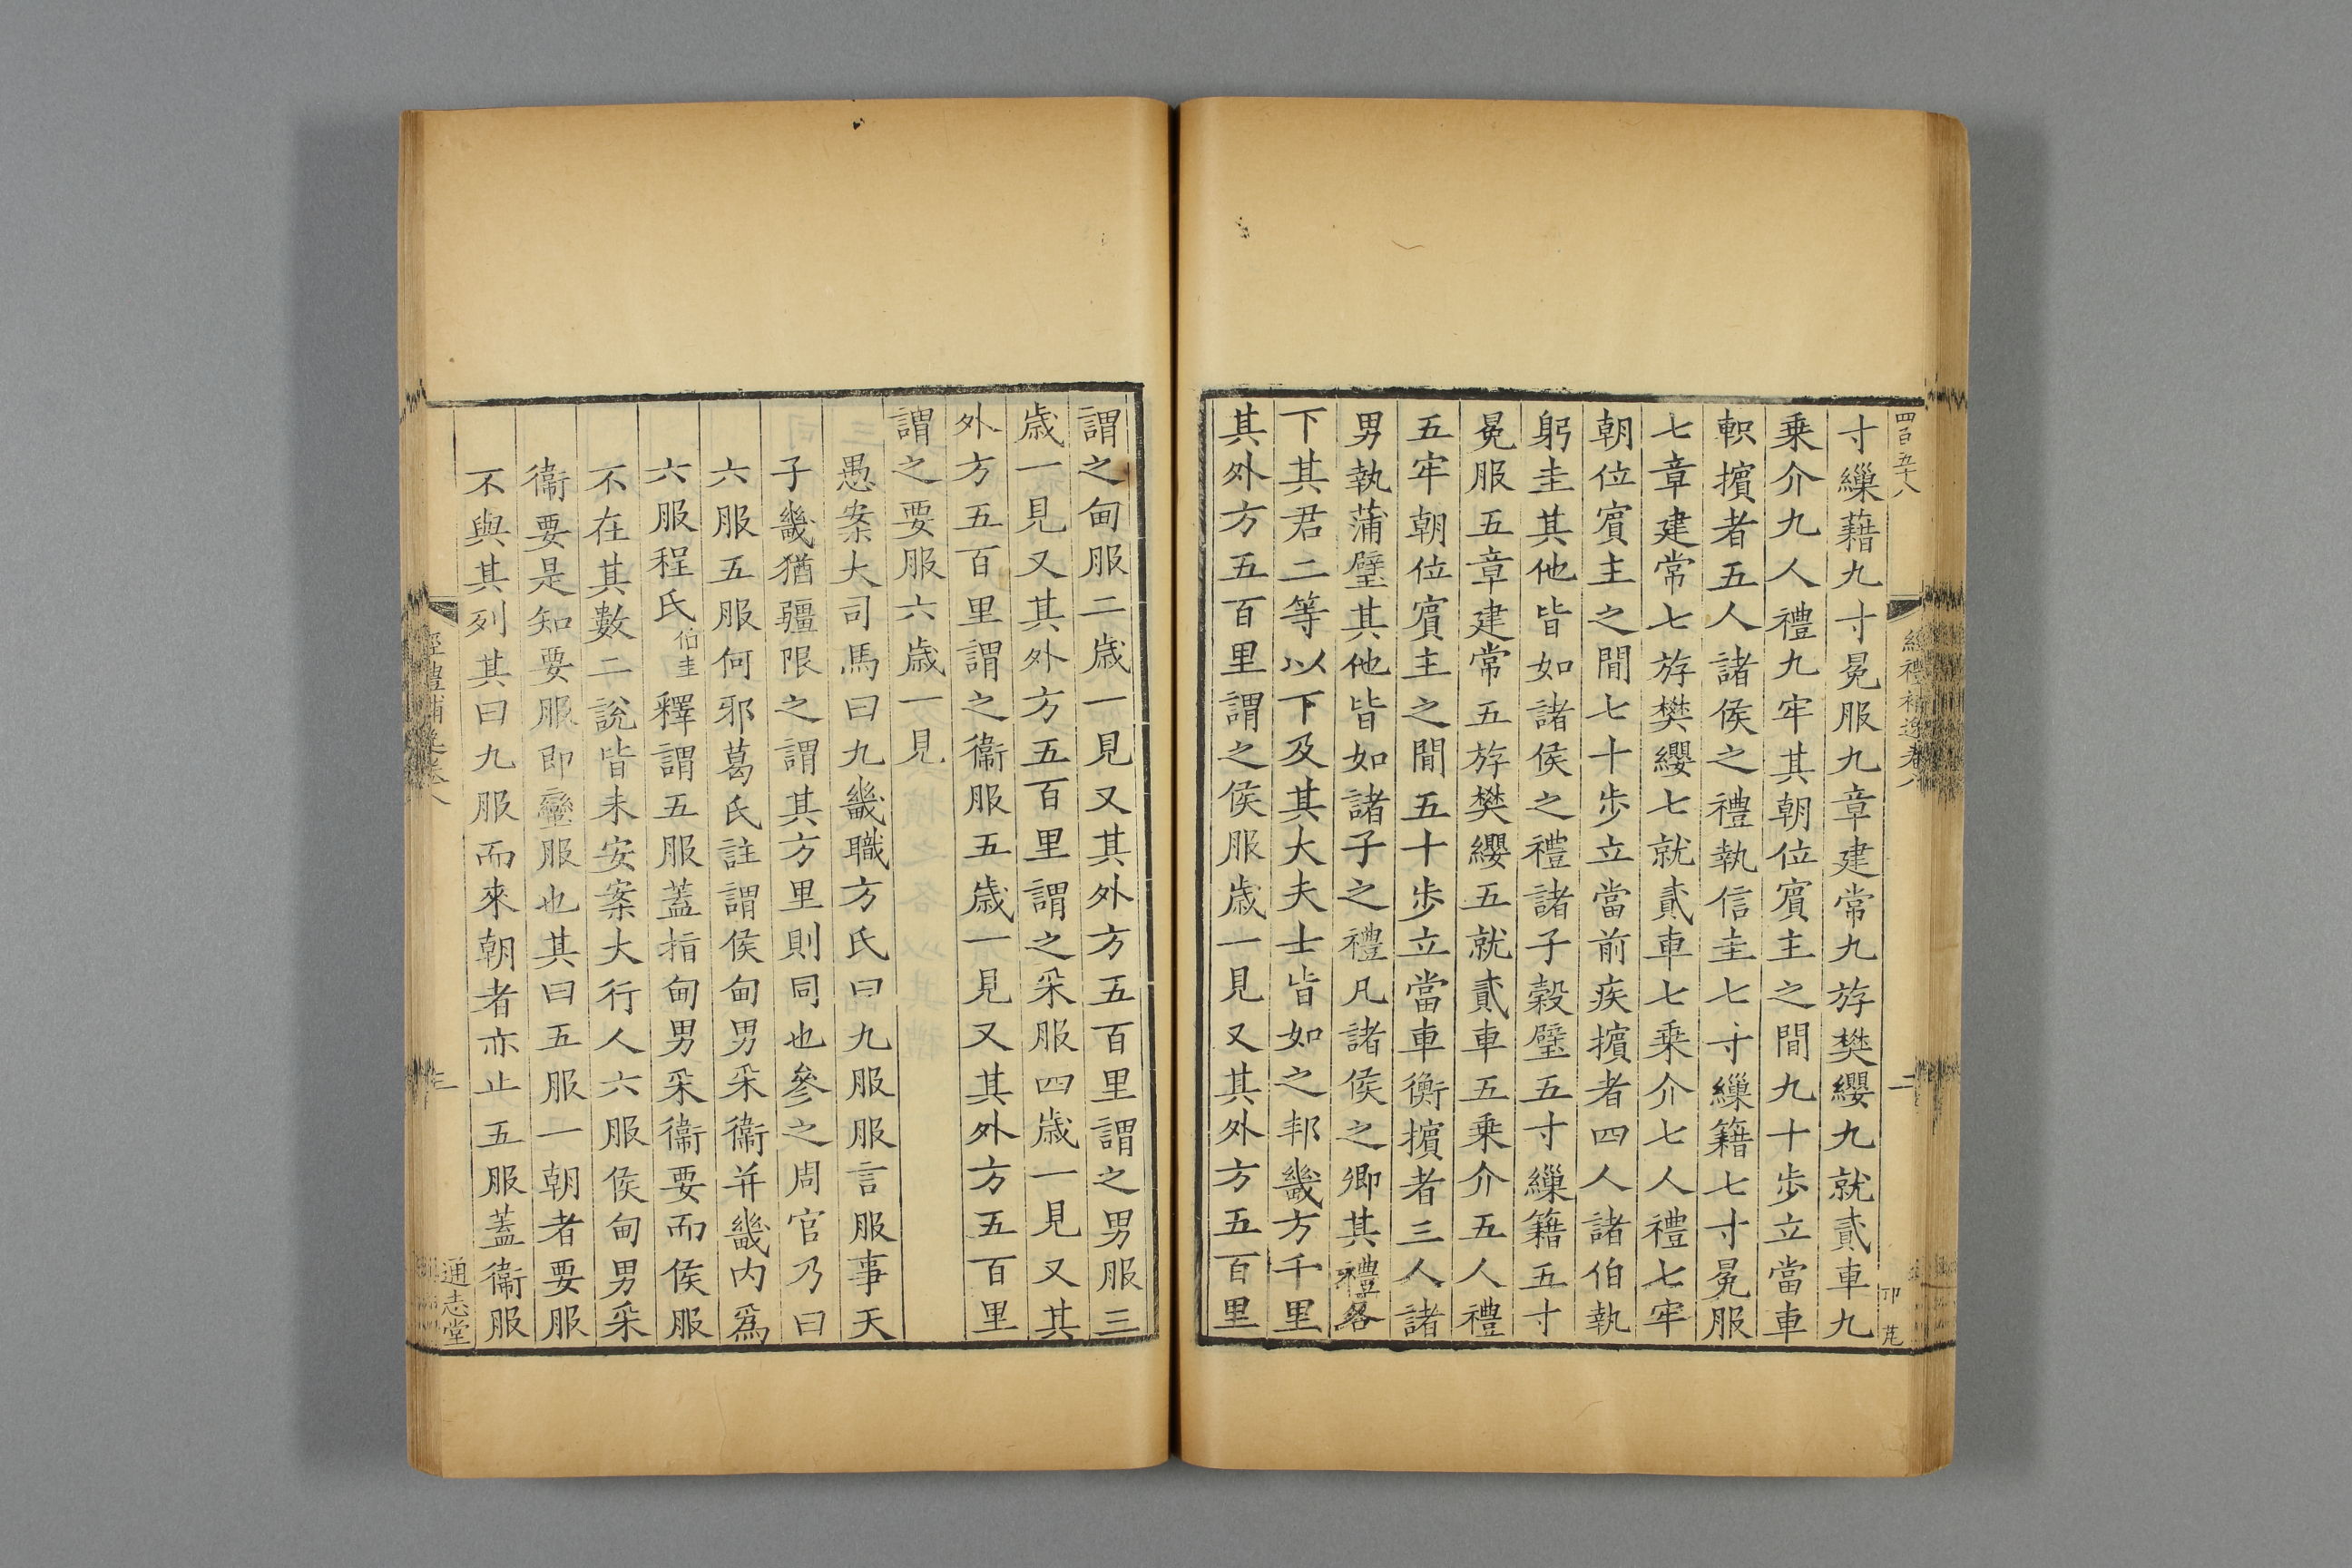 四百五十八
寸繅藉九寸冕服九章建常九斿樊纓九就貳車九
乗介九人禮九牢其朝位賓主之間九十步立當車
軹擯者五人諸侯之禮執信圭七寸繅籍七寸冕服
七章建常七斿樊纓七就貳車七乗介七人禮七牢
朝位賓主之間七十步立當前疾擯者四人諸伯執
躬圭其他皆如諸侯之禮諸子穀璧五寸繅籍五寸
冕服五章建常五斿樊纓五就貳車五乗介五人禮
五牢朝位賓主之間五十步立當車衡擯者三人諸
男執蒲璧其他皆如諸子之禮凡諸侯之卿其禮各
下其君二等以下及其大夫士皆如之邦畿方千里
其外方五百里謂之侯服歲一見又其外方五百里
謂之甸服二歲一見又其外方五百里謂之男服三
歲一見又其外方五百里謂之采服四歲一見又其
外方五百里謂之衞服五歲一見又其外方五百里
謂之要服六歲一見
愚案大司馬曰九畿職方氏曰九服服言服事天
子畿猶疆限之謂其方里則同也參之周官乃曰
六服五服何邪葛氏註謂侯甸男采衞并畿内爲
六服程氏伯圭釋謂五服蓋指甸男采衞要而侯服
不在其數二說皆未安案大行人六服侯甸男采
衞要是知要服即蠻服也其曰五服一朝者要服
不與其列其曰九服而來朝者亦止五服蓋衞服
通志堂